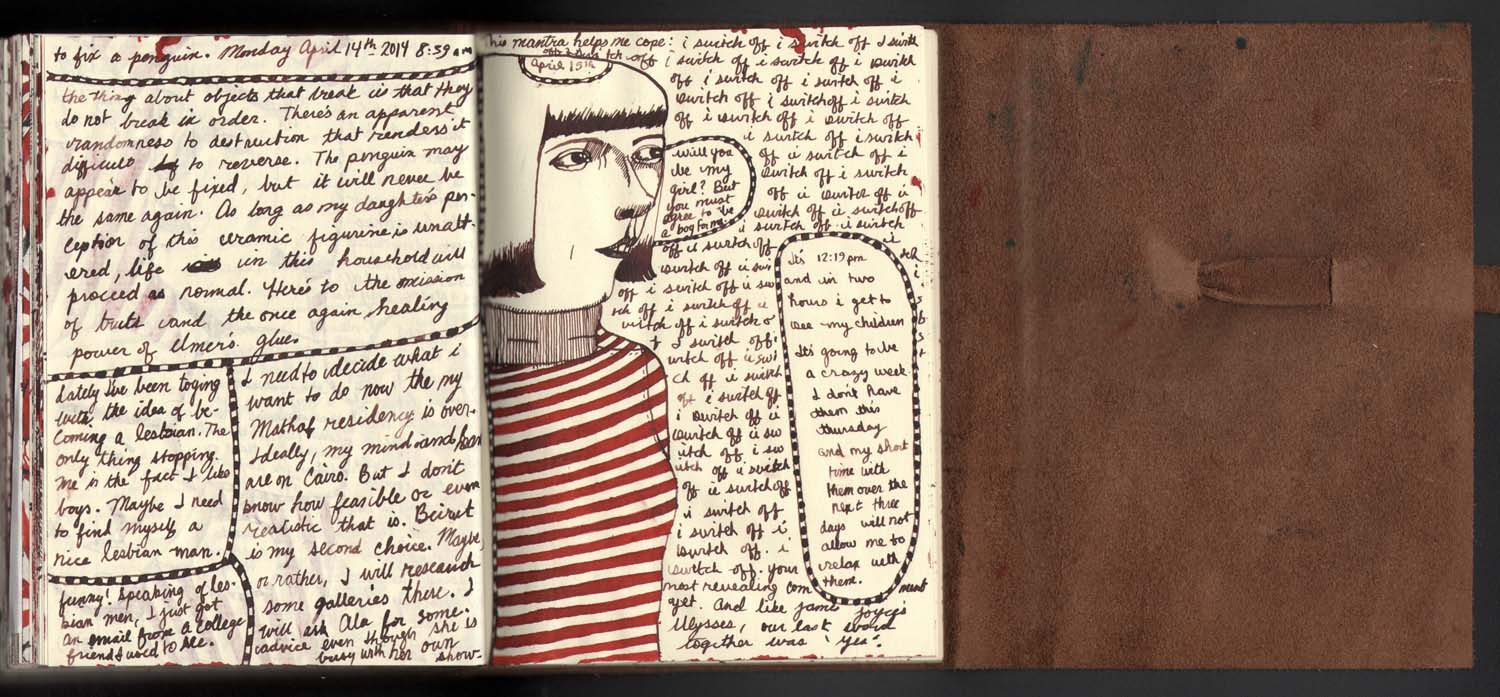 to fix a penguin. Monday April 14th 2014 8:39 am
the thing about objects that break is that they
do not break in order. There's an apparent
randomness to destruction that renders it
to reverse. The penguin may
appear to be fixed, but it will never be
the same again. As long as my daughter's per-
ception of this ceramic figurine is unalt-
ered, life in this household will
proceed as normal. Here's to the omission
of and the once again healing
power of Elmer's glue
Lately I've been toying
with the idea of be-
coming a lesbian. The
only thing stopping
me is the fact I like
boys. Maybe I need
to find myself a
nice lesbian man.
funny! Speaking of les-
bian men, I just got
an email from a college
friend I used to see.
I need to decide what i
want to do now the my
Mathaf residency is over.
Ideally, my mind and
are on Cairo. But I don't
know how feasible or even
realistic that is. Beirut
is my second choice. Maybe,
or rather, I will research
some galleries there. I
will ask Ala for some
advice even though she is
busy with her own show.
this mantra helps me cope: i switch off i switch off I switch
April 15th
off i switch off i switch off i switch
off i switch off i switch off i
switch off i switch off i switch
off i switch off i switch off
i switch off i switch
off i switch off i
switch off i switch
off i switch off i
switch off i switch off
i switch off i switch
will you
be my
girl? But
you must
agree to be
a boy for me.
off i switch off
switch off i swi
off i switch off i sw
tch off i switch off i
switch off i switch o
I switch off
witch off i swi
ch off i switch
off i switch off
i switch off i
switch off i sw
itch off i sw
itch off i switch
off i switch off
i switch off
i switch off i
switch off. i
switch off. your
most revealing comment
yet. And like jame joyce's
Ulysses, our last word
together was 'yes'.
It's 12:19 pm
and in two
hours i get to
see my children
It's going to be
a crazy week.
I don't have
them this
thursday
and my short
time with
them over the
next three
days will not
allow me to
relax with
them.